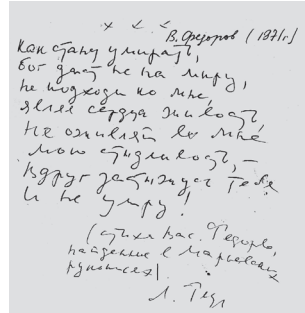 * * *
В. Федоров (1971 г.)
Как стану умирать,
бог даст не на миру,
не подходи ко мне,
являя сердца живость,
Не оживляй во мне
мою стыдливость, –
Вдруг застыжусь тебя
И не умру!
(стихи Вас. Федорова,
найденные в марьевских
рукописях).
Л. Фед